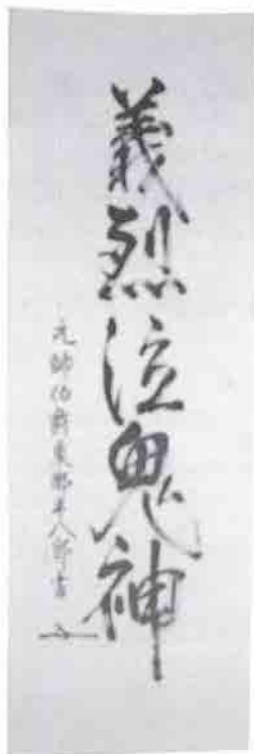 義烈泣鬼神
元帥伯爵東郷平八郎書